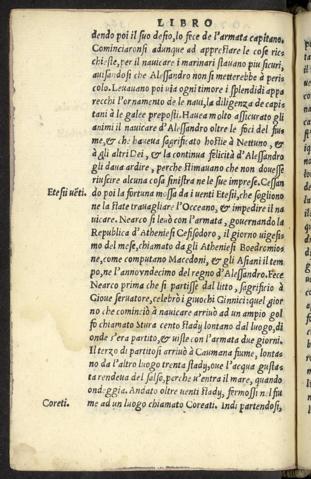 LIBRO
dendo poi il suo desio, lo fece de l'armata capitano.
Cominciaronsi adunque ad apprestare le cose ric
chieste, per il nauicare i marinari stauano piu sicuri,
auisandosi che Alessandro non si metterebbe à peris
colo. Leuauano poi via ogni timore i splendidi appa
recchi l'ornamento de le naui, la diligenza de capis
tani à le galee preposti. Haueua molto assicurato gli
animi il nauicare d'Alessandro oltre le foci del fius
me, & che haueua sagrificato hostie à Nettuno, &
à gli altri Dei, & la continua felicità d'Alessandro
gli daua ardire, perche stimauano che non douesse
riuscire alcuna cosa sinistra ne le sue imprese. Cessan
Etesij uēti.
do poi la fortuna mossa da i uenti Etesij, che sogliono
ne la state trauagliare l'Occeano, & impedire il na
uicare. Nearco si leuò con l'armata, gouernando la
Republica d'Atheniesi Cefisodoro, il giorno uigesi
mo del mese, chiamato da gli Atheniesi Boedromio
ne, come computano Macedoni, & gli Asiani il tem
po, ne l'anno vndecimo del regno d'Alessandro. Fece
Nearco prima che si partisse dal litto, sagrificio à
Gioue seruatore, celebrò i giuochi Ginnici: quel gior
no che cominciò à nauicare arriuò ad un ampio gol
fo chiamato Stura cento stady lontano dal luogo, di
onde s'era partito, & uisse con l'armata due giorni.
Il terzo di partitosi arriuò à Caumana fiume, lonta
no da l'altro luogo trenta stady, oue l'acqua gusta
ta rendeua del salso, perche u'entra il mare, quando
ondeggia. Andato oltre uenti stady, fermossi nel fiu
Coreti.
me ad un luogo chiamato Coreati. Indi partendosi,